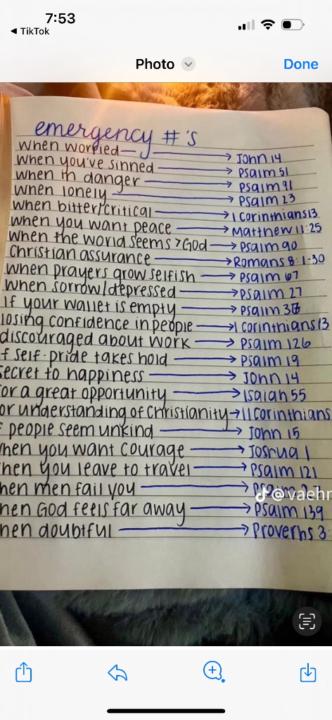 7:53
TikTok
Photo
Done
emergency #'s
when worried → John 14
when you've sinned → Psalm 51
when in danger → Psalm 91
when lonely → Psalm 23
when bitter/critical → 1 Corinthians 13
when you want peace → Matthew 11:25
when the world seems > God → Psalm 90
Christian assurance → Romans 8:1-30
when prayers grow selfish → Psalm 67
when sorrow/depressed → Psalm 27
if your wallet is empty → Psalm
losing confidence in people → 1 Corinthians 13
discouraged about work → Psalm 126
f self-pride takes hold → Psalm 19
ecret to happiness → John 14
or a great opportunity → Isaiah 55
or understanding of Christianity → 11 Corinthians
f people seem unkind → John 15
hen you want courage → Joshua 1
hen you leave to travel → Psalm 121
hen men fail you →
@vaehr
hen God feels far away → Psalm 139
hen doubtful → Proverbs 3